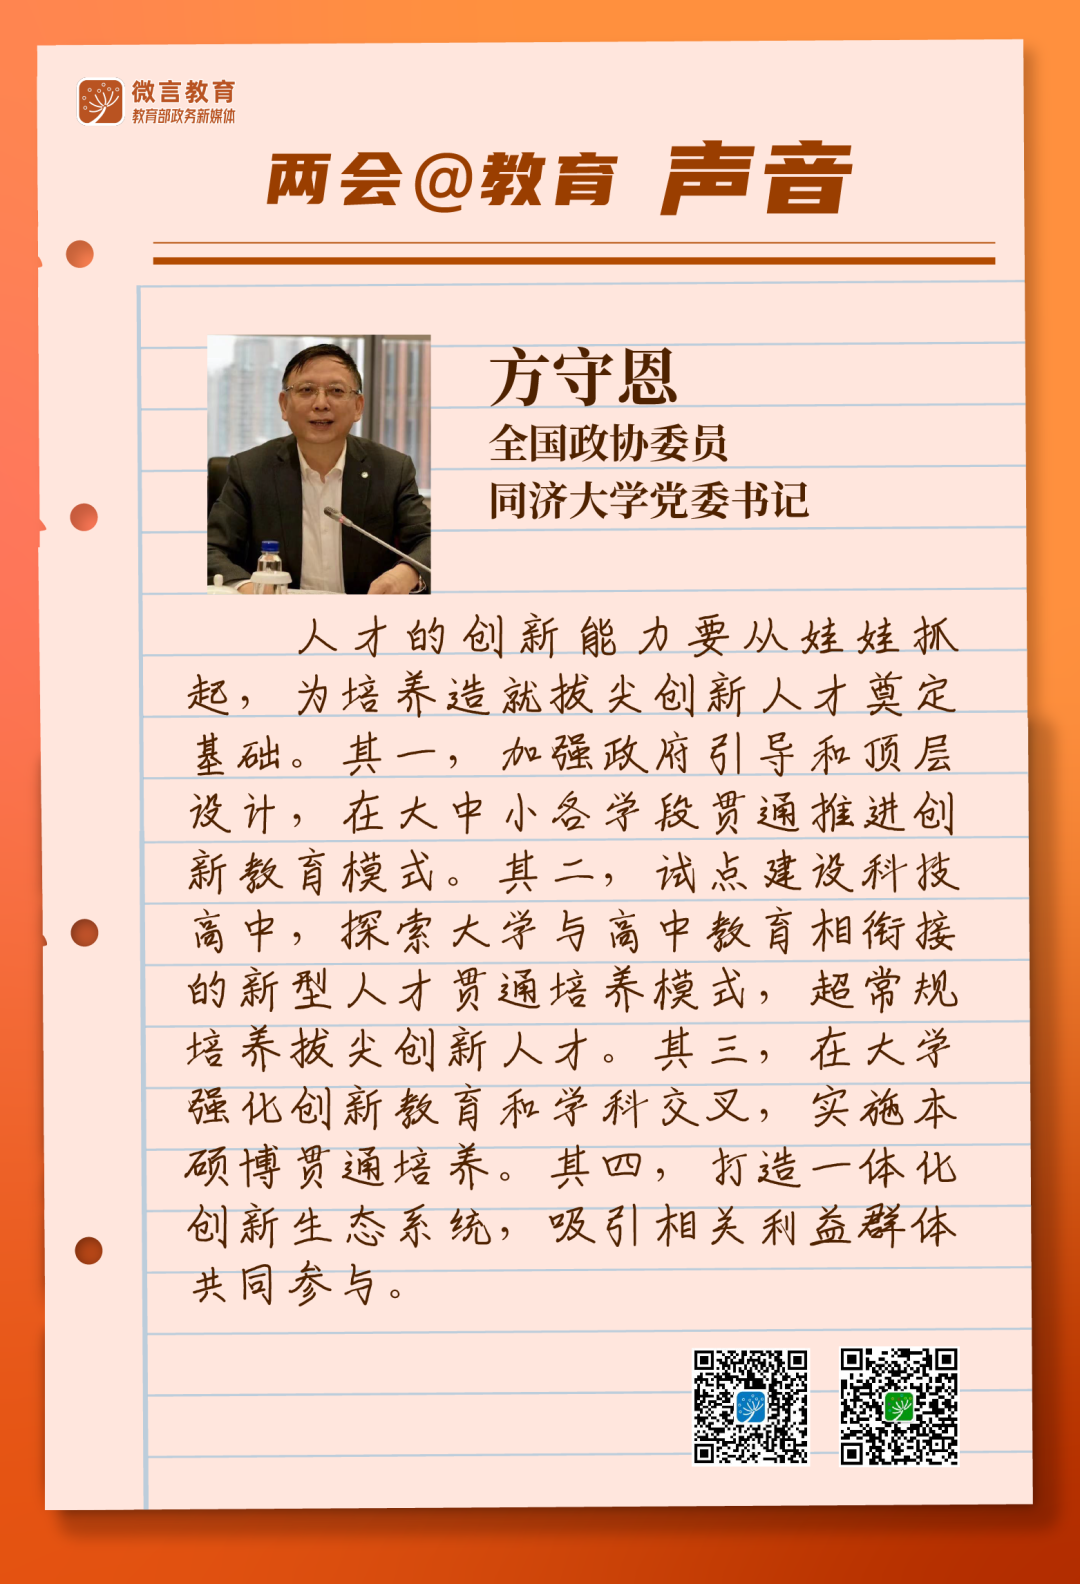 微言教育
教育部政务新媒体
两会@教育 声音
方守恩
全国政协委员
同济大学党委书记
人才的创新能力要从娃娃抓
起，为培养造就拔尖创新人才奠定
基础。其一，加强政府引导和顶层
设计，在大中小各学段贯通推进创
新教育模式。其二，试点建设科技
高中，探索大学与高中教育相衔接
的新型人才贯通培养模式，超常规
培养拔尖创新人才。其三，在大学
强化创新教育和学科交叉，实施本
硕博贯通培养。其四，打造一体化
创新生态系统，吸引相关利益群体
共同参与。